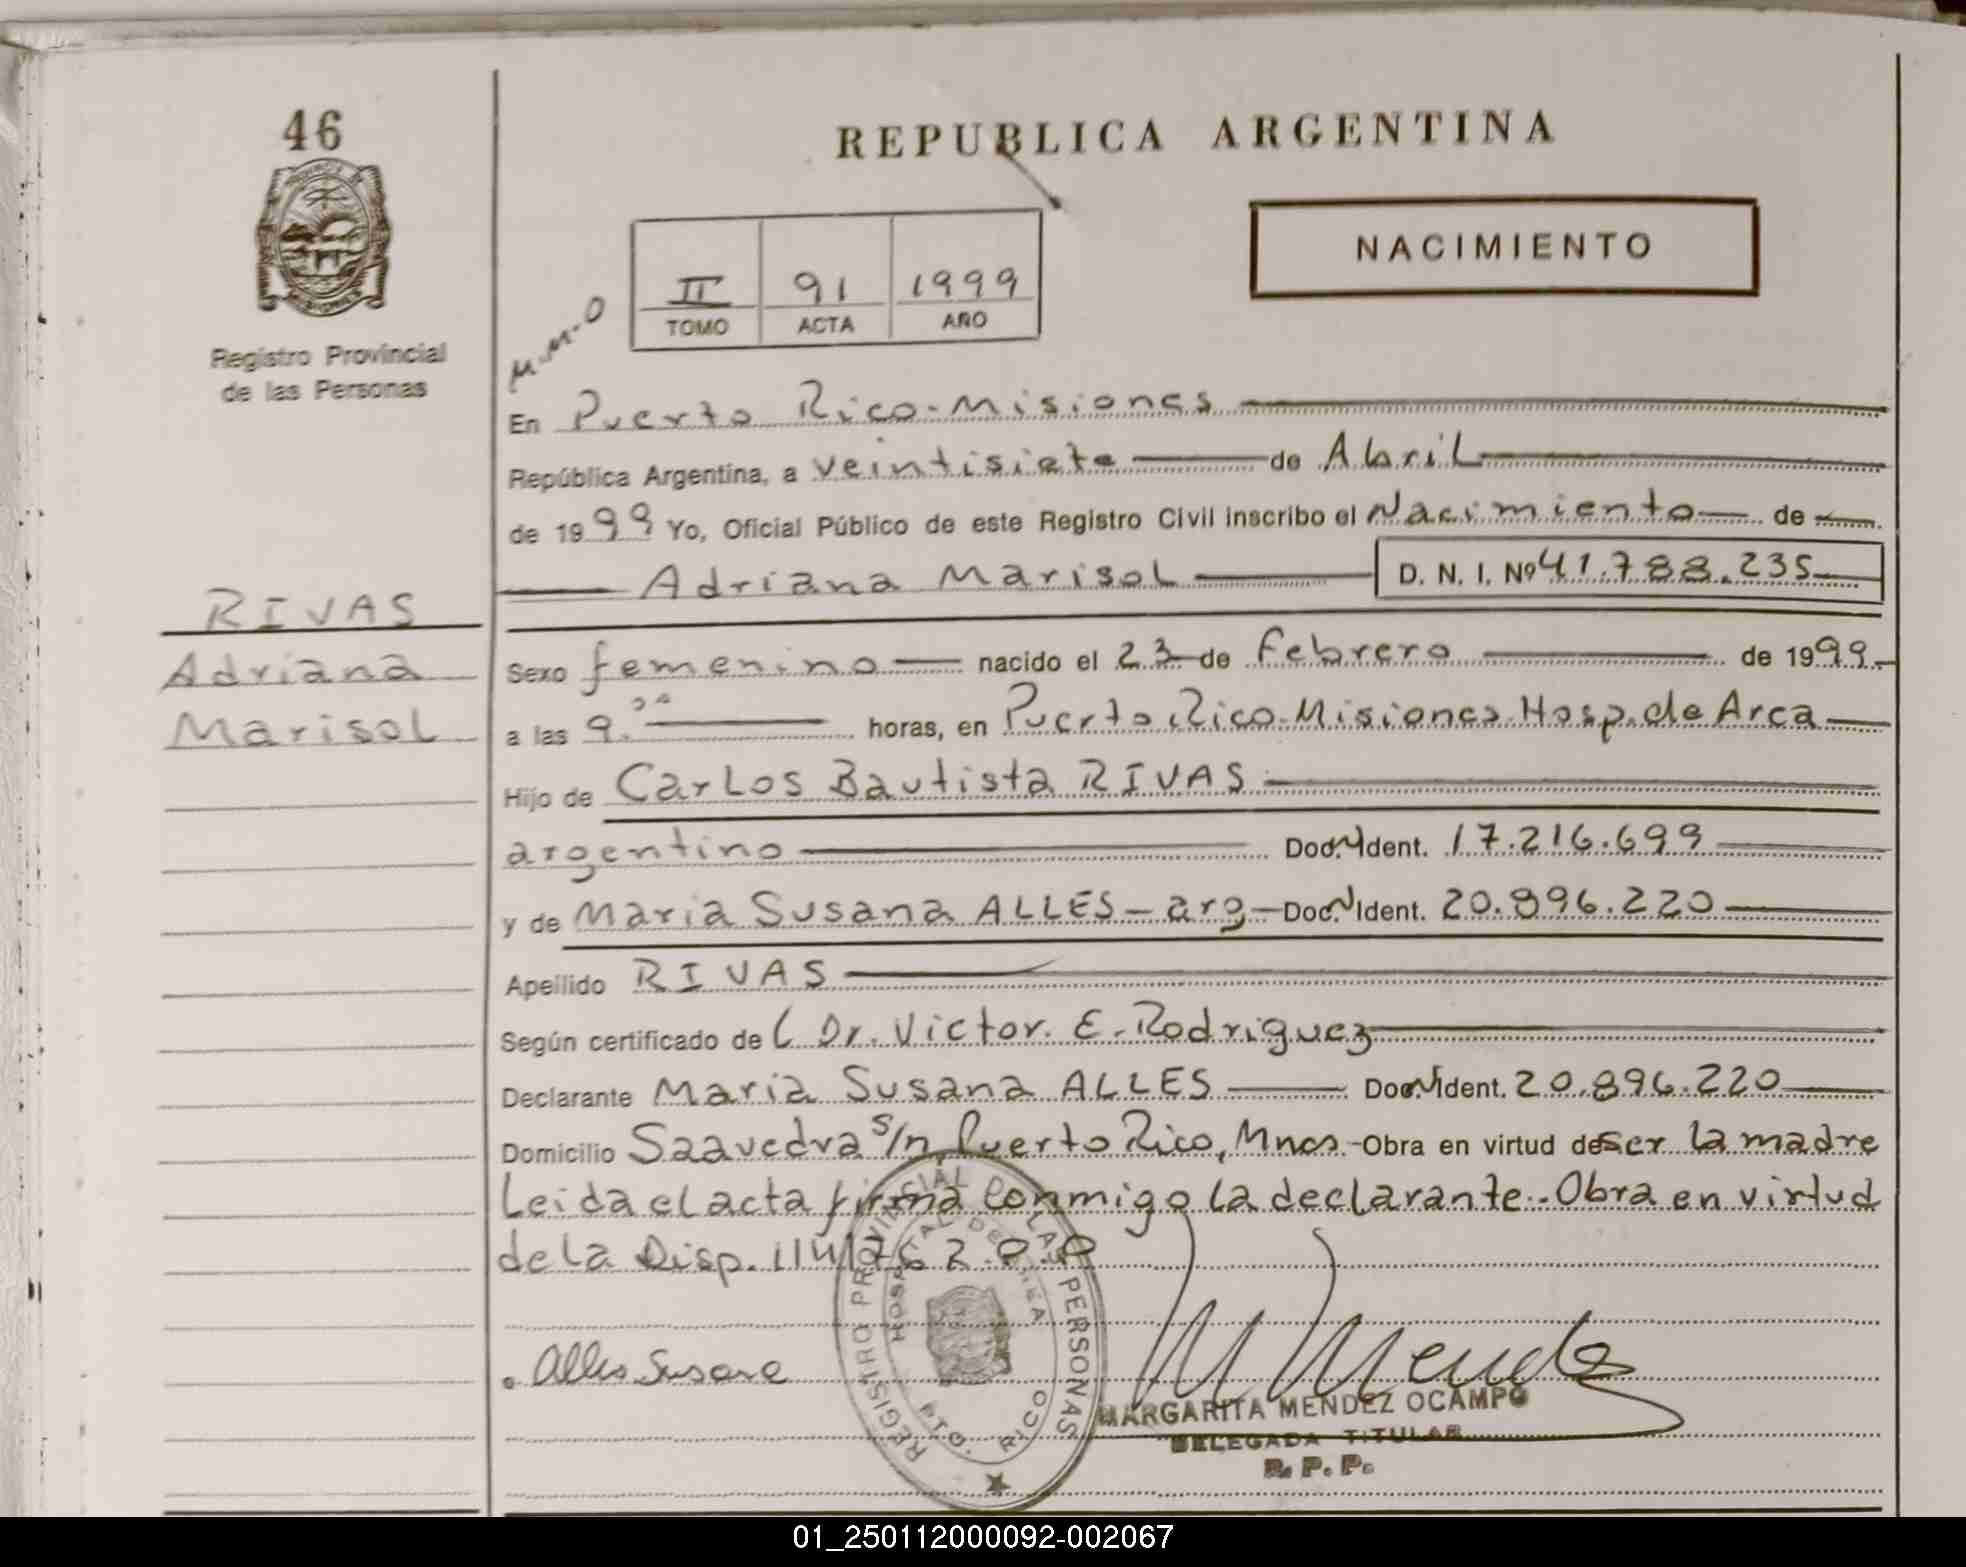 46
Registro Provincial
de las Personas
RIVAS
Adriana
Marisol
REPUBLICA ARGENTINA
NACIMIENTO
II 91 1999
TOMO ACTA AÑO
M.M.O
En Puerto Rico-Misiones
República Argentina, a veintisiete de Abril
de 1999 Yo, Oficial Público de este Registro Civil inscribo el Nacimiento de
Adriana Marisol D. N. I. Nº 41.788.235
Sexo femenino nacido el 23 de Febrero de 1999
a las 9.³⁰ horas, en Puerto Rico-Misiones Hosp. de Area
Hijo de Carlos Bautista RIVAS
argentino Doc. N Ident. 17.216.699
y de Maria Susana ALLES - arg - Doc. N Ident. 20.896.220
Apellido RIVAS
Según certificado de Dr. Victor E. Rodriguez
Declarante Maria Susana ALLES Doc. N Ident. 20.896.220
Domicilio Saavedra s/n, Puerto Rico, Mnes.- Obra en virtud de ser la madre
Leida el acta firma conmigo la declarante.. Obra en virtud
de la Disp. 114/76
Alles Susana
REGISTRO PROVINCIAL DE LAS PERSONAS
HOSPITAL DE AREA
PTO. RICO
M Mendez
MARGARITA MENDEZ OCAMPO
DELEGADA TITULAR
R. P. P.
01_250112000092-002067